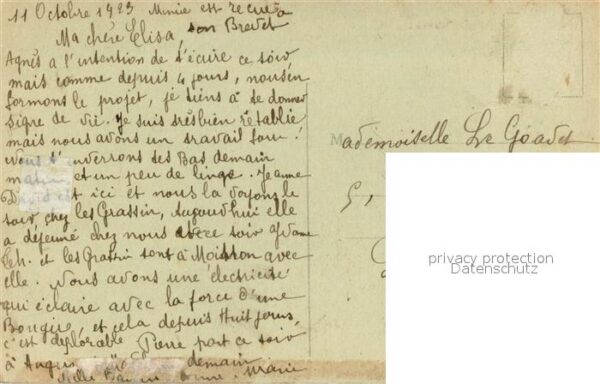 11 Octobre 1923 Mimie est recue à
son Brevet
Ma chère Elisa,
Agnès a l'intention de t'écrire ce soir
mais comme depuis 4 jours, nous en
formons le projet, je tiens à te donner
signe de vie. Je suis très bien rétablie
mais nous avons un travail fou!
Nous t'enverrons tes Bas demain
matin et un peu de linge. Jeanne
est ici et nous la voyons le
soir chez les Grassin, Aujourd'hui elle
a déjeuné chez nous avec ce soir
et les Grassin sont à Moisson avec
elle. Nous avons une électricité
qui éclaire avec la force d'une
Bougie, et cela depuis Huit jours,
c'est déplorable Pierre part ce soir
à demain
Marie
Mademoiselle Le Goadet
privacy protection
Datenschutz